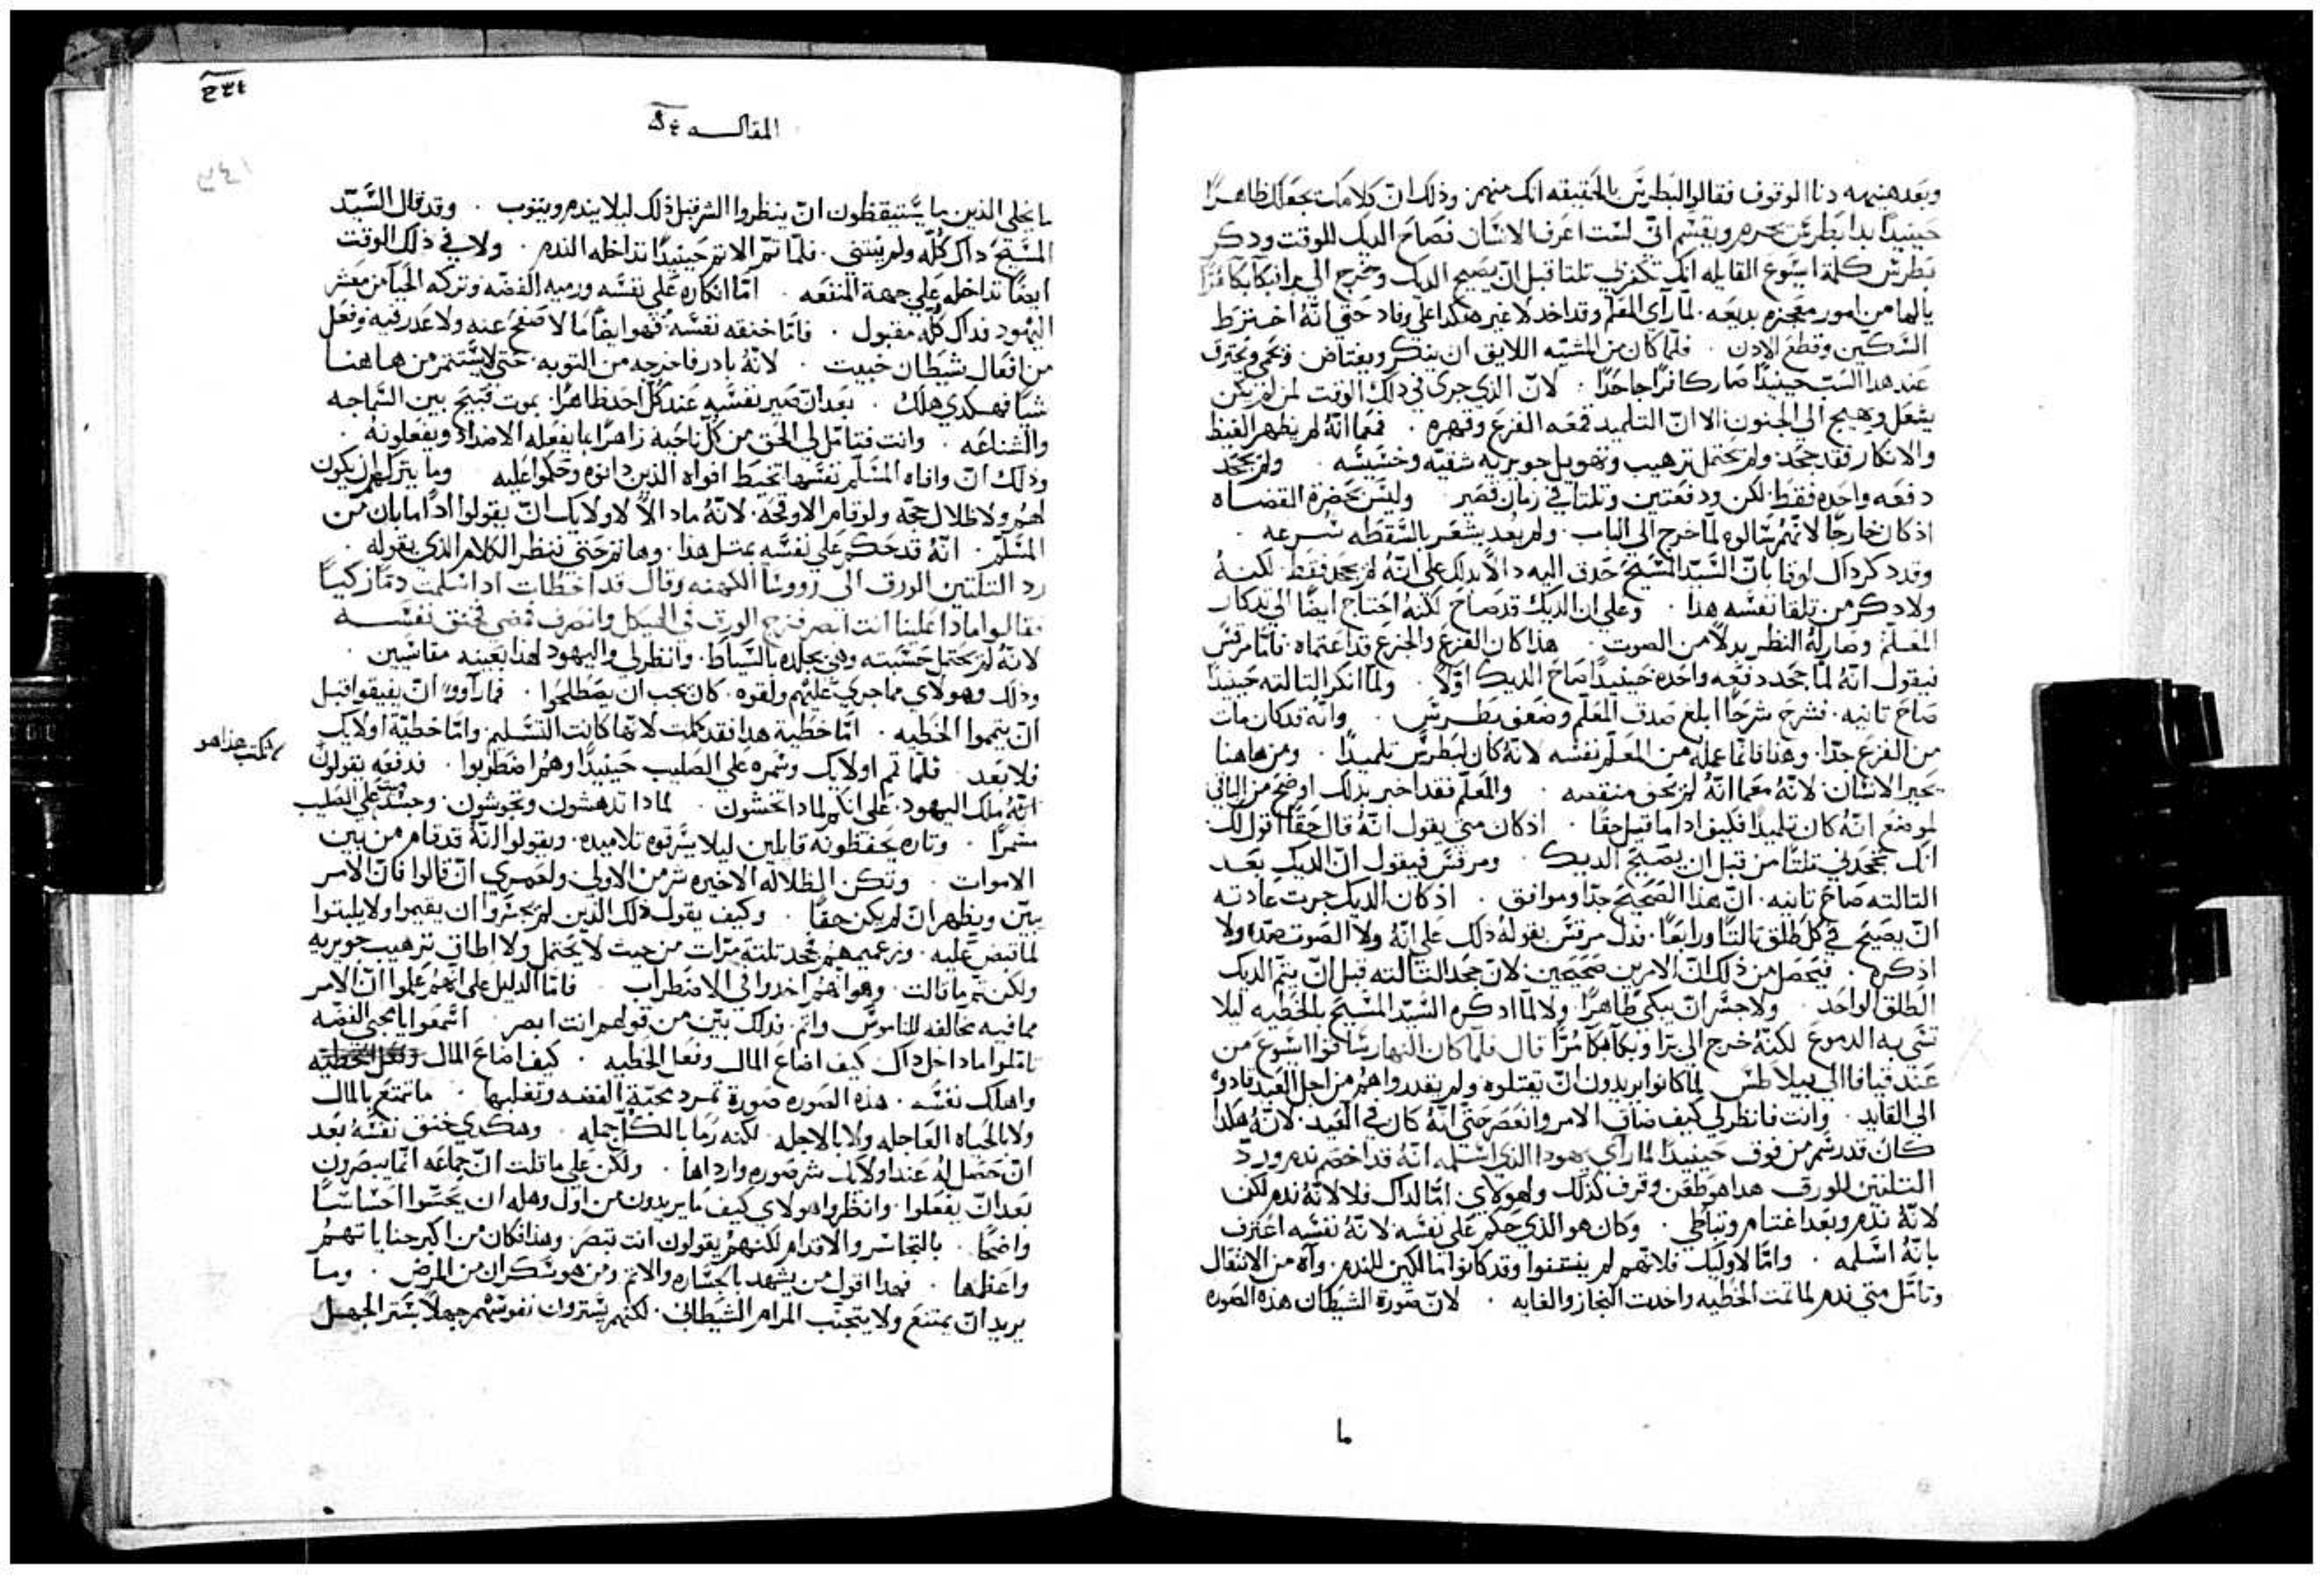 وبعد هنيهه دنا الوقوف فقالوا لبطرس بالحقيقه انك منهم وذلك ان كلامك يجعلك ظاهرًا
حينيدًا بدا بطرس يحرم ويقسم اني لست اعرف الانسان فصاح الديك للوقت ودكر
بطرس كلمة ايسوع القايله انك تكفر بي تلتا قبل ان يصيح الديك وخرج الي برا فبكا بكاً مرًّا
يالها من امور معجزه بديعه لما راي المعلم وقد اخد لا غير هكدا علي وقاد حتي انه اخترط
السكين وقطع الادن فلما كان من المشبه اللايق ان ينكر ويغتاض ويحمي ويحترق
عند هدا السب حينيدًا صار كافرًا جاحدًا لان الذي جري في دلك الوقت لمن لم يكن
يشعل ويهيج الي الجنون الا ان التلميد قمعه الفزع وقهره فمعما انه لم يظهر الغيظ
والانكار فقد جحد ولم يحتمل ترهيب وتهويل جويريه شقيه وخسيسه ولم يجحد
دفعه واحده فقط لكن ودفعتين وتلتا في زمان قصير وليس بحضرة القضاه
اذ كان خارجًا لانهم سالوه لما خرج الي الباب ولم يعد يشعر بالسقطه بسرعه
وقد دكر داك لوقا بان السيد المسيح حدق اليه دالًا بدلك علي انه لم يجحد فقط لكنه
ولا دكر من تلقا نفسه هدا وعلي ان الديك قد صاح لكنه احتاج ايضًا الي تدكار
المعلم وصار له النظر بدلًا من الصوت هذا كان الفزع والجزع قد اعتماه فاما مرقس
فيقول انه لما جحد دفعه واحده حينيدًا صاح الديك اولًا ولما انكر التالته حينيدًا
صاح تانيه فشرح شرحًا ابلغ صدق المعلم وضعف بطرس وانه قد كان مات
من الفزع جدًا وهذا فانما عمله من المعلم نفسه لانه كان لبطرس تلميدًا ومن هاهنا
يحير الانسان لانه معما انه لم يخف منقصه والمعلم فقد اخبر بدلك اوضح من الباقي
لموضع انه كان تلميدًا فكيف ادا ما قيل حقًا اذ كان متي يقول انه قال حقًا اقول لك
انك تجحدني تلتًا من قبل ان يصيح الديك ومرقس فيقول ان الديك بعد
التالته صاح تانيه ان هذا الصحيح جدًا وموافق اذ كان الديك جرت عادته
ان يصيح في كل طلق تالتًا ورابعًا فدل مرقس بقوله ذلك علي انه ولا الصوت صده ولا
اذكره فيحصل من ذلك ان الامرين صحيحين لان جحد التالته قبل ان يتم الديك
الطلق الواحد ولا جسر ان يبكي ظاهرًا ولا لما ادكره السيد المسيح بالخطيه ليلا
تشي به الدموع لكنه خرج الي برا وبكا بكاً مرًّا قال فلما كان النهار ساقوا ايسوع من
عند قيافا الي بيلاطس لما كانوا يريدون ان يقتلوه ولم يقدروا هم من اجل العيد قادوه
الي القايد وانت فانظر لي كيف ضاق الامر وانعصر حتي انه كان في العيد لانه هكدا
كان قد رسم من فوق حينيدًا لما راي يهودا الذي اسلمه انه قد اخصم ندم ورد
التلتين للورق هدا هو طعن وقرف كذلك ولهولاي اما لداك فلا لانه ندم لكن
لانه ندم وبعد اغتنام وتباطي وكان هو الذي حكم علي نفسه لانه نفسه اعترف
بانه اسلمه واما لاوليك فلانهم لم يفتننوا وقد كانوا مالكين للندم واه من الانتقال
وتامل متي ندم لما تمت الخطيه واخدت النجاز والغايه لان صورة الشيطان هذه الصوره
ما
المقاله
ما يخلي الذين ما يستيقظون ان ينظروا الشر قبل ذلك ليلا يندم ويتوب وقد قال السيد
المسيح داك كله ولم ينتني فلما تم الاتم حينيدًا تداخله الندم ولا في ذلك الوقت
ايضًا تداخله علي جهة المنفعه اما انكاره علي نفسه ورميه الفضه وتركه الحيا من معشر
اليهود فداك كله مقبول فاما خنقه نفسه فهو ايضًا ما لا صفح عنه ولا عدر فيه وفعل
من افعال شيطان خبيت لانه بادر فاخرجه من التوبه حتي لا يستتمر من هاهنا
شيًا فهكدي هلك بعد ان صير نفسه عند كل احد ظاهرًا بموت قبيح بين السماجه
والشناعه وانت فتامل لي الحق من كل ناحية زاهرًا بما يفعله الاضداد ويفعلونه
وذلك ان وافاه المسلم نفسها تخيط افواه الذين دانوه وحكموا عليه وما يترك لهم ان يكون
لهم ولا ظلال حجه ولو قام الاوقحه لانه مادا الا لاولايك ان يقولوا ادا ما بان من
المسلم انه قد حكم علي نفسه بمتل هدا وهاتم حتي ننظر الكلام الذي يقوله
رد التلتين الورق الي رووسا الكهنه وقال قد اخطات اد اسلمت دمًا زكيًا
فقالوا مادا علينا انت ابصر فزج الورق في الهيكل وانصرف فمضي فخنق نفسه
لانه لم يحتمل حسبته وهي تجلده بالسياط وانظر لي واليهود لهذا بعينه مقاسيين
وذلك وهولاي مما جري عليهم ولقوه كان يجب ان يصطلحوا فما راوا ان يفيقوا قبل
ان يتموا الخطيه اما خطية هدا فقد كملت لانها كانت التسليم واما خطية اولايك
فلا بعد فلما تم اولايك وسمره علي الصليب حينيدًا وهم اضطربوا فدفعه يقولون
لا تكتب هذا هو
انه ملك اليهود علي انكم لمادا تخشون لمادا تدهشون وتحوشون وجسد ميت علي الصليب
مسمرًا وتاره يحفظونه قايلين ليلا يسرقوه تلاميده ويقولوا انه قد قام من بين
الاموات وتكن الظلاله الاخيره شر من الاولي ولعمري ان قالوا فان الامر
يتبين ويظهر ان لم يكن حقًا وكيف يقول ذلك الذين لم يجسروا ان يقيموا ولا يلبتوا
لما قبض عليه وزعيمهم جحد تلته مرات من حيت لا يحتمل ولا اطاق ترهيب جويريه
ولكن تم ما قالت وهو انهم اخدوا في الاضطراب فاما الدليل علي انهم علموا ان الامر
مما فيه مخالفه للناموس واتم فدلك بين من قولهم انت ابصر اسمعوا يا محبي الفضه
تاملوا مادا دخل داك كيف اضاع المال وفعل الخطيه كيف اضاع المال
واهلك نفسه هذه الصوره صورة تمرد محبة الفضه وتغلبها ما تمتع بالمال
ولا بالحياه العاجله ولا بالاجله لكنه رما بالكل جمله وهكدي خنق نفسه بعد
ان حصل له عند اولايك شر صوره وارداها ولكن علي ما قلت ان جماعه انما يبصرون
بعد ان يفعلوا وانظروا هولاي كيف ما يريدون من اول وهله ان يحسوا احساسًا
واضحًا بالتجاسر والاقدام لكنهم يقولون انت تبصر وهذا فكان من اكبر جناياتهم
واعظمها فهدا اقول من يشهد بالجساره والاتم ومن هو سكران من المرض وما
يريد ان يمتنع ولا يتجنب المرام الشيطاني لكنهم يسترون نفوسهم جهلًا بستر الجهل